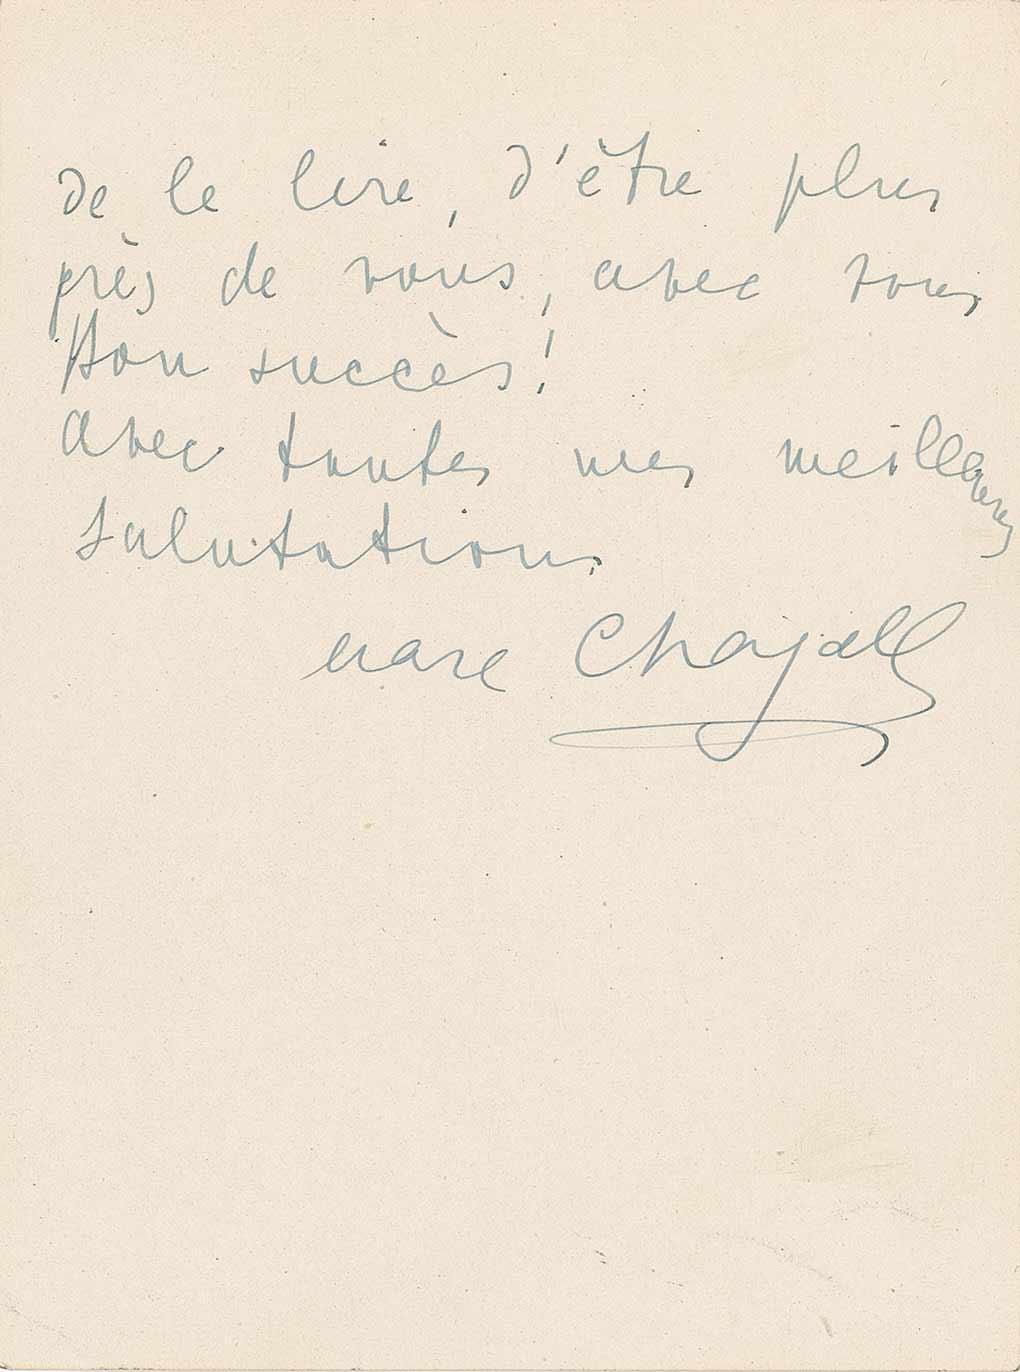 de le lire, d'être plus
près de vous, avec vous
Bon succès!
avec toutes mes meilleures
salutations
Marc Chagall